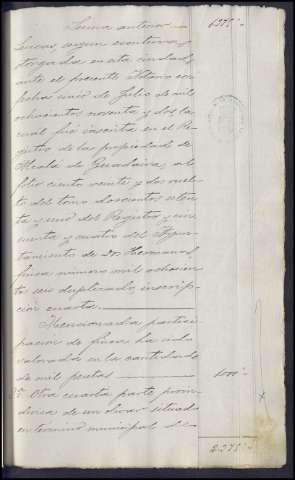 Suma anterior 6375"-
Lucas, segun escritura
otorgada en esta ciudad,
ante el presente Notario con
fecha unos de Julio de mil
ochocientos noventa y dos la
cual fué inscrita en el Re-
gistro de la propiedad de
Alcalá de Guadaira, al
folio ciento veinte y dos vuel-
to del tomo doscientos seten-
ta y uno del Registro y cin-
cuenta y cuatro del Ayun-
tamiento de Dos Hermanas,
finca número mil ochocien-
tos seis duplicado, inscrip-
ción cuarta.
Mencionada partici-
pacion de finca ha sido
valorada en la cantidad
de mil pesetas 1000"-
3ª Otra cuarta parte proin-
divisa de un olivar situado
en término municipal de